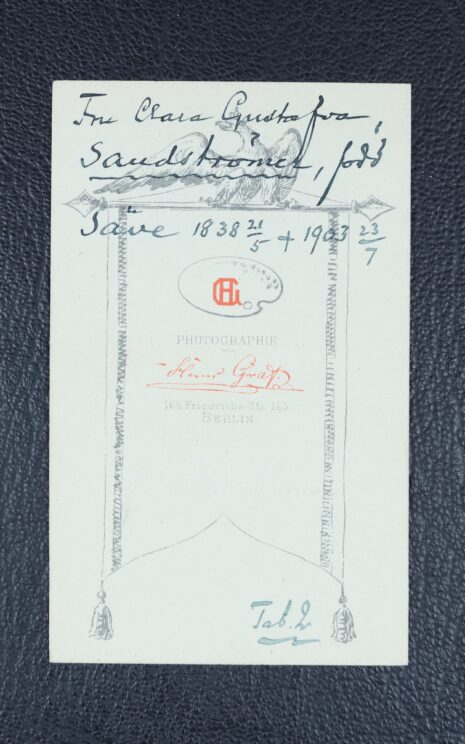 Fru Clara Gustafva,
Sandströmer, född
Säve 1838 21/5 + 1903 23/7
HG
PHOTOGRAPHIE
VON
Hans Graf,
165. Friedrichs-Str. 165.
BERLIN.
Tab. 2